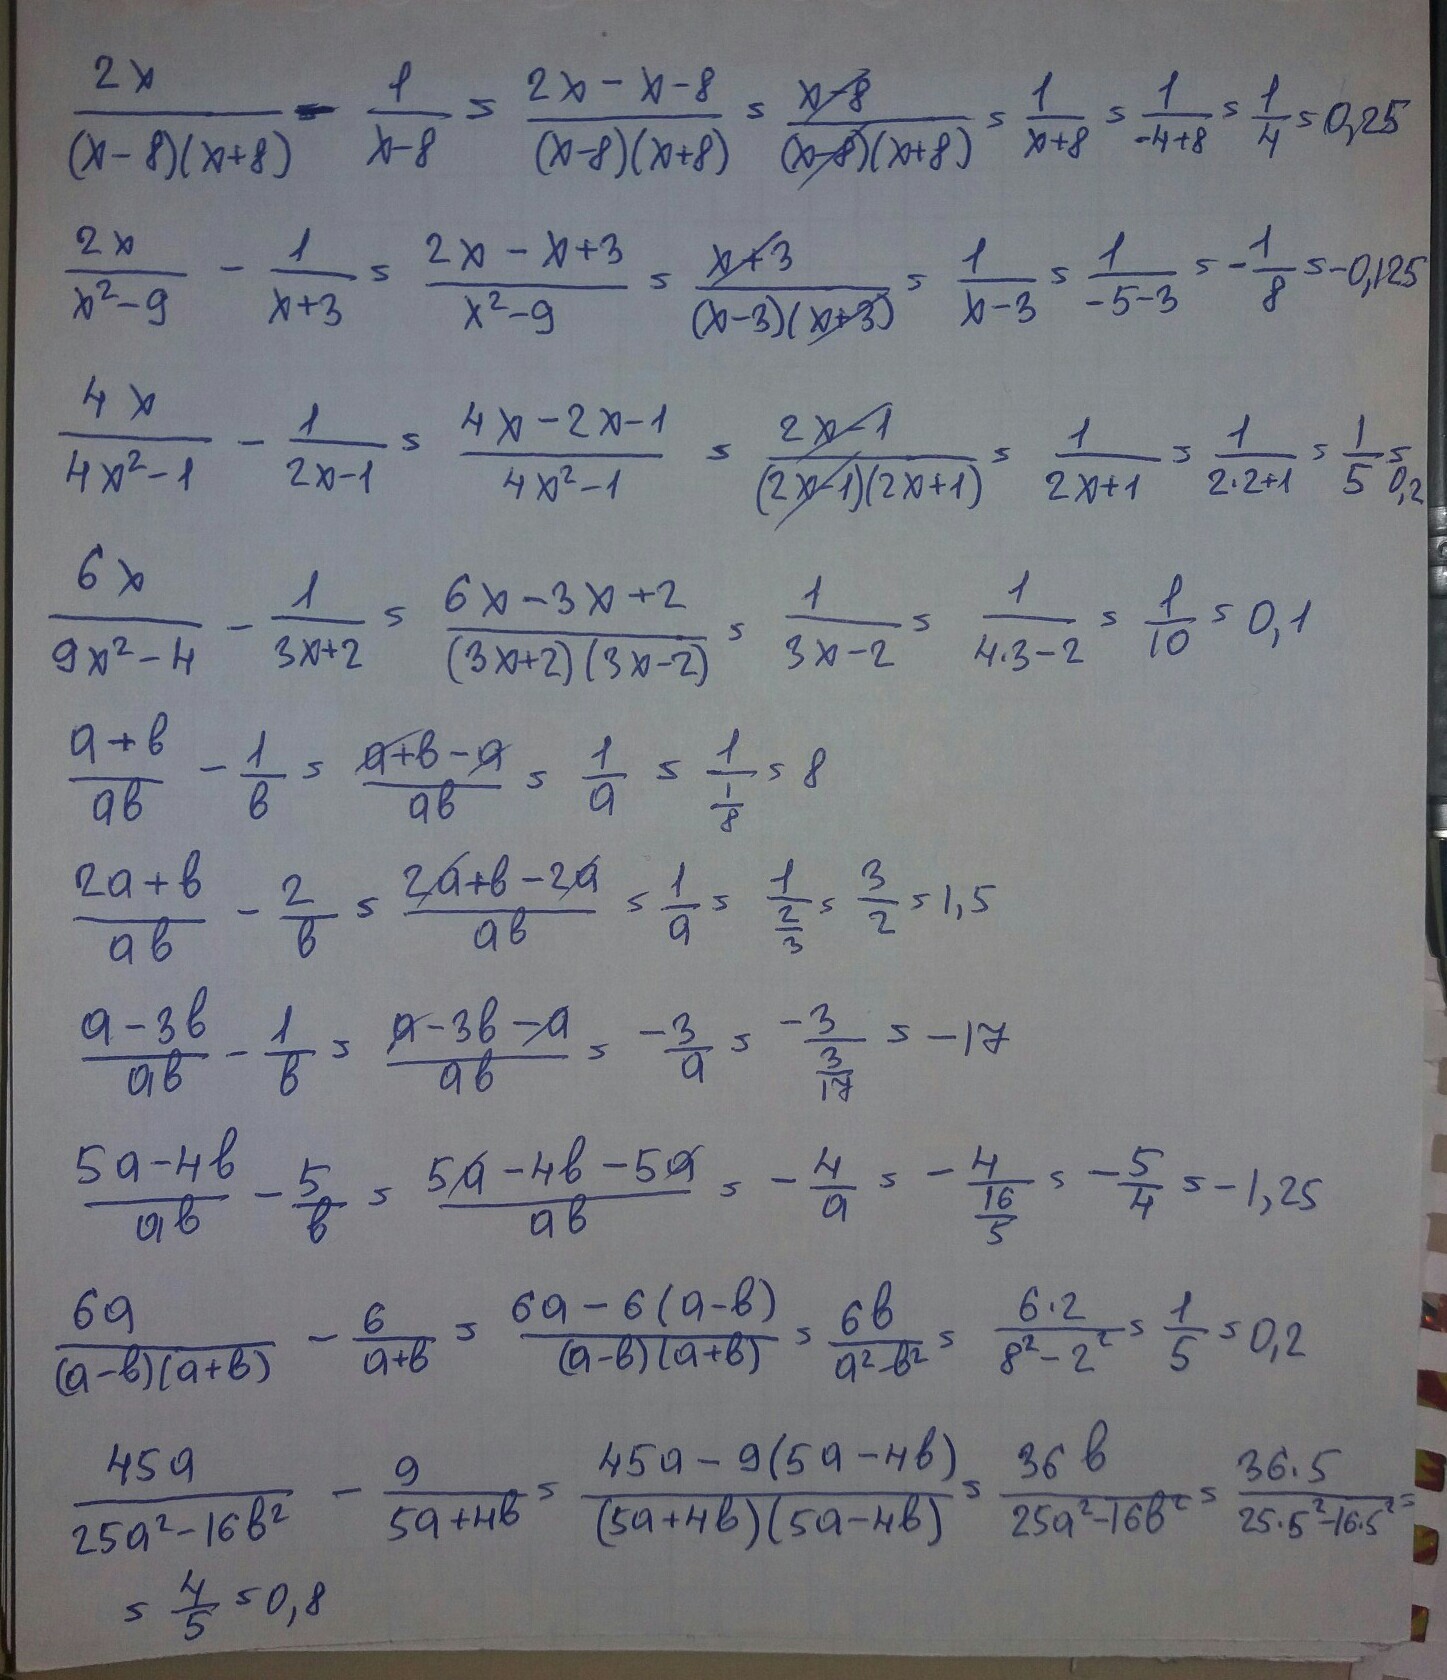 2x/((x-8)(x+8)) - 1/(x-8) = (2x-x-8)/((x-8)(x+8)) = (x-8)/((x-8)(x+8)) = 1/(x+8) = 1/(-4+8) = 1/4 = 0,25
2x/(x²-9) - 1/(x+3) = (2x-x+3)/(x²-9) = (x+3)/((x-3)(x+3)) = 1/(x-3) = 1/(-5-3) = -1/8 = -0,125
4x/(4x²-1) - 1/(2x-1) = (4x-2x-1)/(4x²-1) = (2x-1)/((2x-1)(2x+1)) = 1/(2x+1) = 1/(2·2+1) = 1/5 = 0,2
6x/(9x²-4) - 1/(3x+2) = (6x-3x+2)/((3x+2)(3x-2)) = 1/(3x-2) = 1/(4·3-2) = 1/10 = 0,1
(a+b)/(ab) - 1/b = (a+b-a)/(ab) = 1/a = 1/(1/8) = 8
(2a+b)/(ab) - 2/b = (2a+b-2a)/(ab) = 1/a = 1/(2/3) = 3/2 = 1,5
(a-3b)/(ab) - 1/b = (a-3b-a)/(ab) = -3/a = -3/(3/17) = -17
(5a-4b)/(ab) - 5/b = (5a-4b-5a)/(ab) = -4/a = -4/(16/5) = -5/4 = -1,25
6a/((a-b)(a+b)) - 6/(a+b) = (6a-6(a-b))/((a-b)(a+b)) = 6b/(a²-b²) = (6·2)/(8²-2²) = 1/5 = 0,2
45a/(25a²-16b²) - 9/(5a+4b) = (45a-9(5a-4b))/((5a+4b)(5a-4b)) = 36b/(25a²-16b²) = (36·5)/(25·5²-16·5²) =
= 4/5 = 0,8